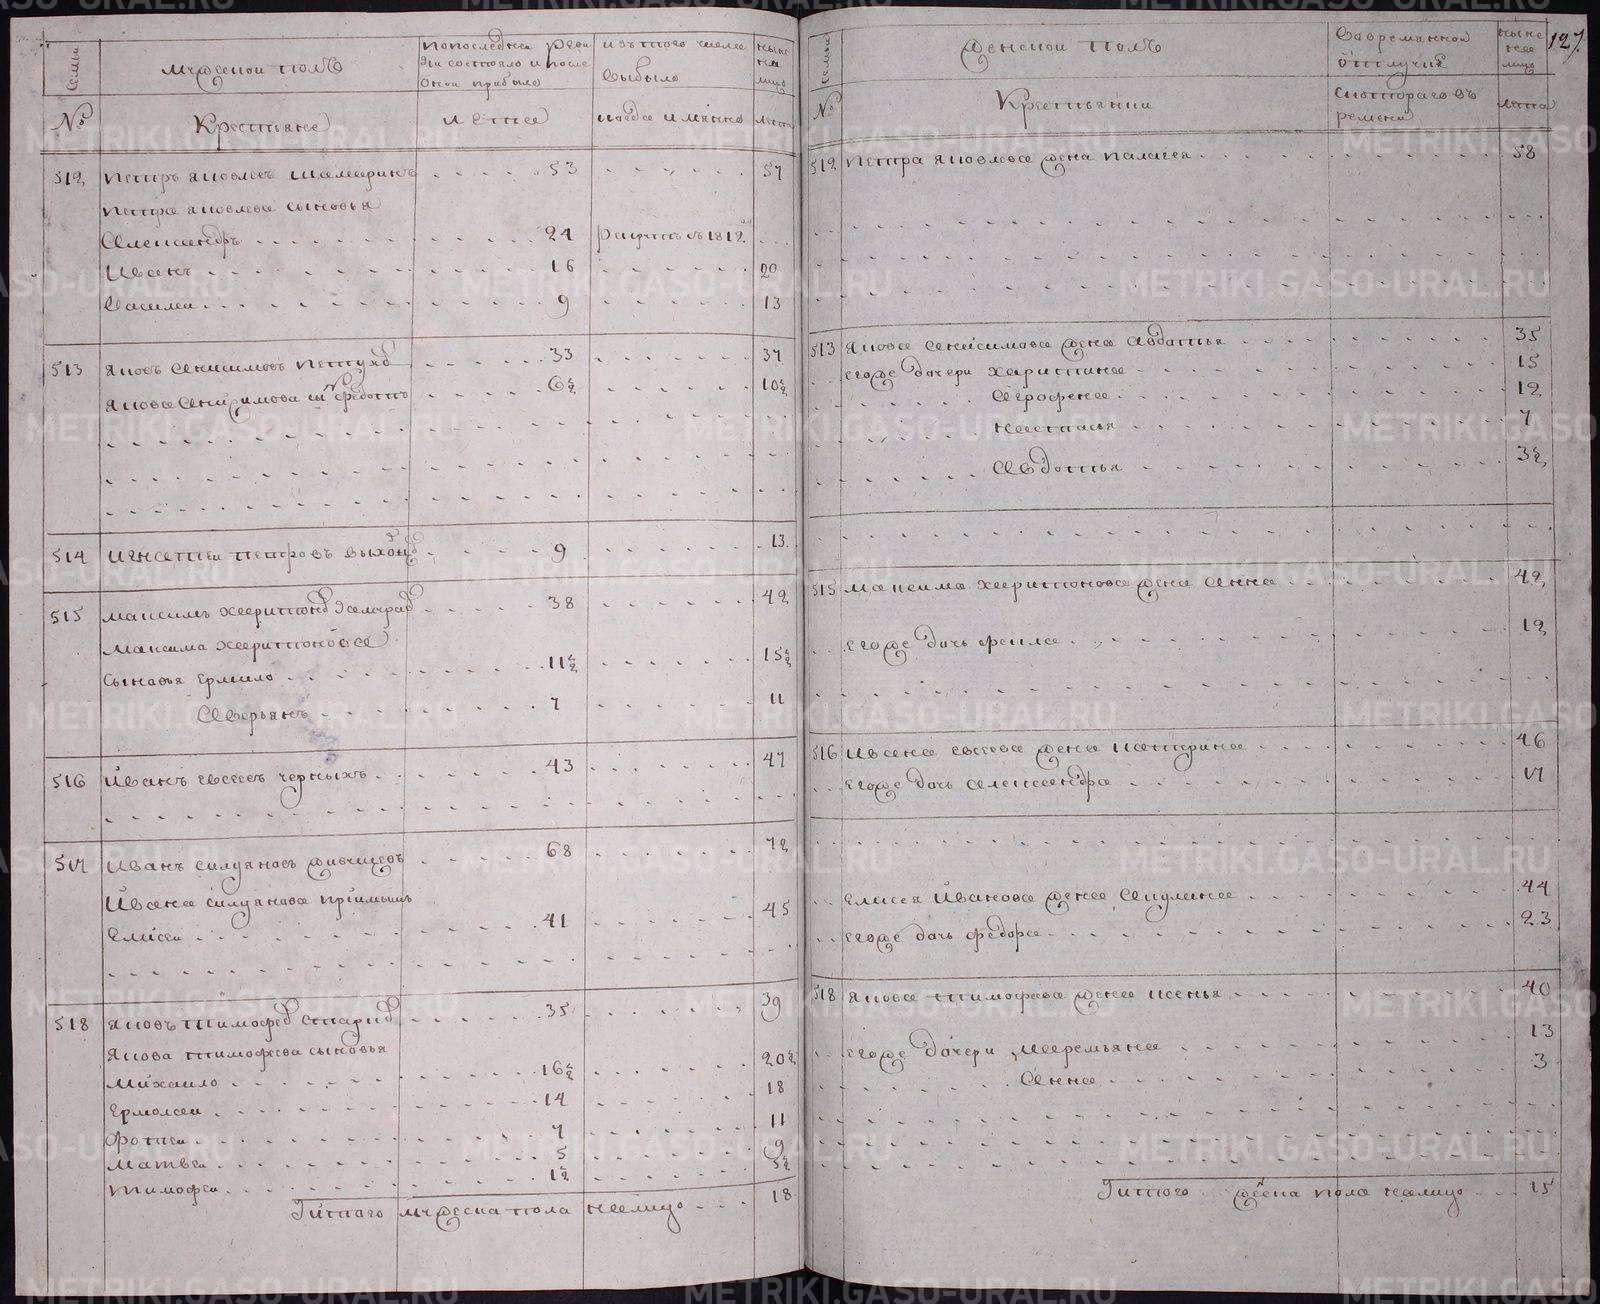 Семьи
мужескои полъ
попоследнеи реви
зіи состояло и после
онои прибыло
изътого числа
выбыло
ныне
на
лицо
№
Крестьяне
лета
когда имянно
лета
512 петръ яковлевъ 53 57
петра яковлева сыновья
александръ 24 рекрутъ въ 1812
Иванъ 16 20
Василеи 9 13
513 яковъ анисимовъ 33 37
якова анисимова сынъ федотъ 6½ 10½
514 петровъ 9 13
515 максимъ харитонов 38 42
максима харитонова
сыновья ермило 11½ 15½
аверьянъ 7 11
516 Иванъ евсеевъ черныхъ 43 47
517 Иванъ силуяновъ 68 72
Ивана силуянова пріимышъ
Елисеи 41 45
518 яковъ тимофеев 35 39
якова тимофеева сыновья
михаило 16½ 20½
Ермолаи 14 18
Фотеи 7 11
матвеи 5 9
тимофеи 1½ 5½
Iитого мужеска пола налицо 18
127.
Семьи
женскои полъ
вовременнои
отлучке
ныне
на
лицо
№
Крестьянки
скотораго въ
ремени
лета
512 петра яковлева жена палагея 58
513 якова анисимова жена авдотья 35
егоже дочери харитина 15
аграфена 12
настасья 7
авдотья 3½
515 максима харитонова жена анна 42
егоже дочь фекла 12
516 Ивана евсеева жена катерина 46
егоже дочь александра 17
елисея Иванова жена акулина 44
егоже дочь федора 23
518 якова тимофеева жена ксенья 40
егоже дочери маремьяна 13
анна 3
Iитого женска пола налицо 15
METRIKI.GASO-URAL.RU